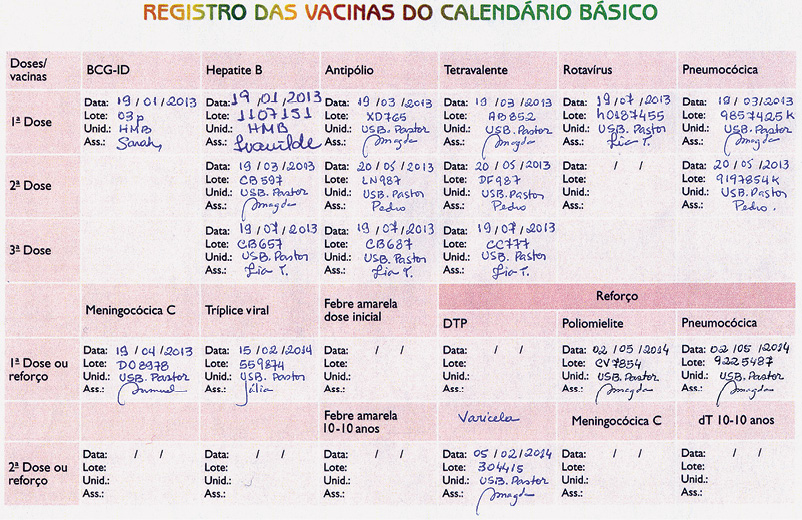 REGISTRO DAS VACINAS DO CALENDÁRIO BÁSICO
Doses/ vacinas BCG-ID Hepatite B Antipólio Tetravalente Rotavírus Pneumocócica
1ª Dose
Data: 19/01/2013 Data: 19/01/2013 Data: 19/03/2013 Data: 19/03/2013 Data: 19/07/2013 Data: 19/03/2013
Lote: 03p Lote: 1107151 Lote: XD765 Lote: AB852 Lote: h0187455 Lote: 9857425k
Unid.: HMB Unid.: HMB Unid.: USB. Pastor Unid.: USB. Pastor Unid.: USB. Pastor Unid.: USB. Pastor
Ass.: Sarah Ass.: Ass.: Magda Ass.: Magda Ass.: Lia T. Ass.: Magda
2ª Dose
Data: 19/03/2013 Data: 20/05/2013 Data: 20/05/2013 Data: / / Data: 20/05/2013
Lote: CB597 Lote: LN987 Lote: DF987 Lote: Lote: 9197854k
Unid.: USB. Pastor Unid.: USB. Pastor Unid.: USB. Pastor Unid.: Unid.: USB. Pastor
Ass.: Magda Ass.: Pedro Ass.: Pedro Ass.: Ass.: Pedro.
3ª Dose
Data: 19/07/2013 Data: 19/07/2013 Data: 19/07/2013
Lote: CB657 Lote: CB687 Lote: CC777
Unid.: USB. Pastor Unid.: USB. Pastor Unid.: USB. Pastor
Ass.: Lia T. Ass.: Lia T. Ass.: Lia T.
Meningocócica C Tríplice viral Febre amarela dose inicial Reforço
DTP Poliomielite Pneumocócica
1ª Dose ou reforço
Data: 19/04/2013 Data: 15/02/2014 Data: / / Data: / / Data: 02/05/2014 Data: 02/05/2014
Lote: D08978 Lote: 559874 Lote: Lote: Lote: CV7854 Lote: 9225487
Unid.: USB. Pastor Unid.: USB. Pastor Unid.: Unid.: Unid.: USB. Pastor Unid.: USB. Pastor
Ass.: Samuel Ass.: Júlia Ass.: Ass.: Ass.: Magda Ass.: Magda
Febre amarela 10-10 anos Varicela Meningocócica C dT 10-10 anos
2ª Dose ou reforço
Data: / / Data: / / Data: / / Data: 05/02/2014 Data: / / Data: / /
Lote: Lote: Lote: Lote: 304415 Lote: Lote:
Unid.: Unid.: Unid.: Unid.: USB. Pastor Unid.: Unid.:
Ass.: Ass.: Ass.: Ass.: Magda Ass.: Ass.: